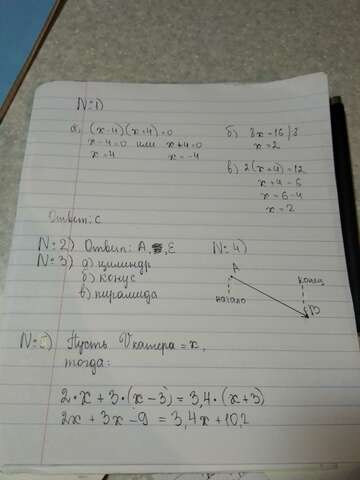 N:1)
а) (x-4)(x+4)=0
x-4=0 или x+4=0
x=4 x=-4
б) 8x=16|:8
x=2
в) 2(x+4)=12
x+4=6
x=6-4
x=2
Ответ: C
N:2) Ответ: A, E
N:3) а) цилиндр
б) конус
в) пирамида
N:4)
A
начало
конец
B
N:5) Пусть Vкатера=x,
тогда:
2·x+3·(x-3)=3,4·(x+3)
2x+3x-9=3,4x+10,2